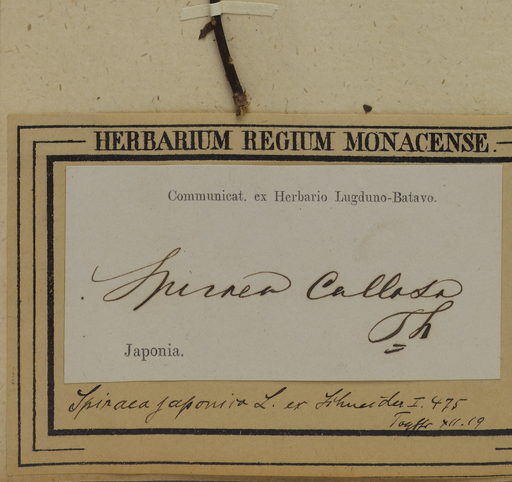 HERBARIUM REGIUM MONACENSE.
Communicat. ex Herbario Lugduno-Batavo.
Spiraea Callosa
Th
Japonia.
Spiraea japonica L. ex Schneider I. 475
XII. 19